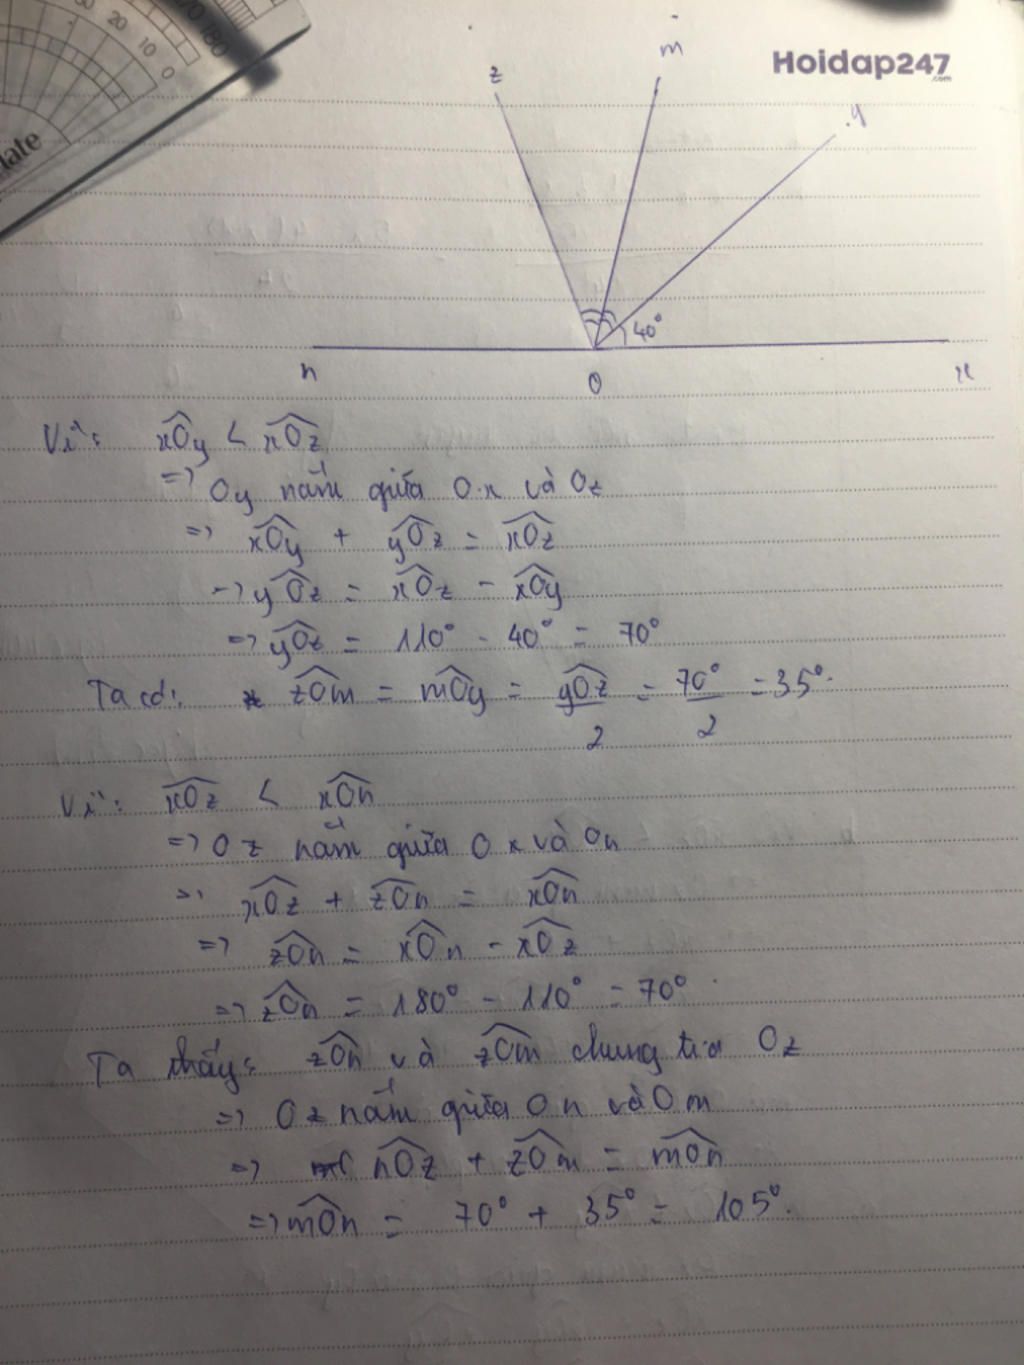 30 20 10 0
170 180
late
Hoidap247
.com
z
m
y
40°
n
O
x
Vì: xOy < xOz
=> Oy nằm giữa Ox và Oz
=> xOy + yOz = xOz
=> yOz = xOz - xOy
=> yOz = 110° - 40° = 70°
Ta có: zOm = mOy = yOz/2 = 70°/2 = 35°.
Vì: xOz < xOn
=> Oz nằm giữa Ox và On
=> xOz + zOn = xOn
=> zOn = xOn - xOz
=> zOn = 180° - 110° = 70°
Ta thấy: zOn và zOm chung tia Oz
=> Oz nằm giữa On và Om
=> nOz + zOm = mOn
=> mOn = 70° + 35° = 105°.